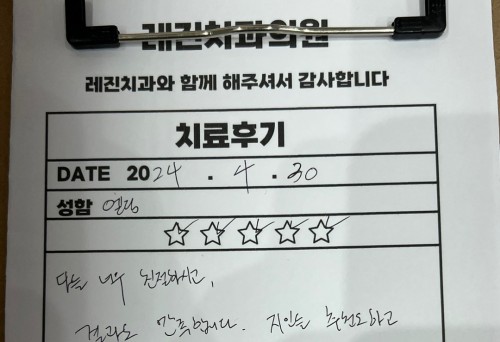 레진치과의원
레진치과와 함께 해주셔서 감사합니다
치료후기
DATE 2024 . 4 . 30
성함
☆ ☆ ☆ ☆ ☆
다들 너무 친절하시고,
결과도 만족합니다. 지인들 추천도하고